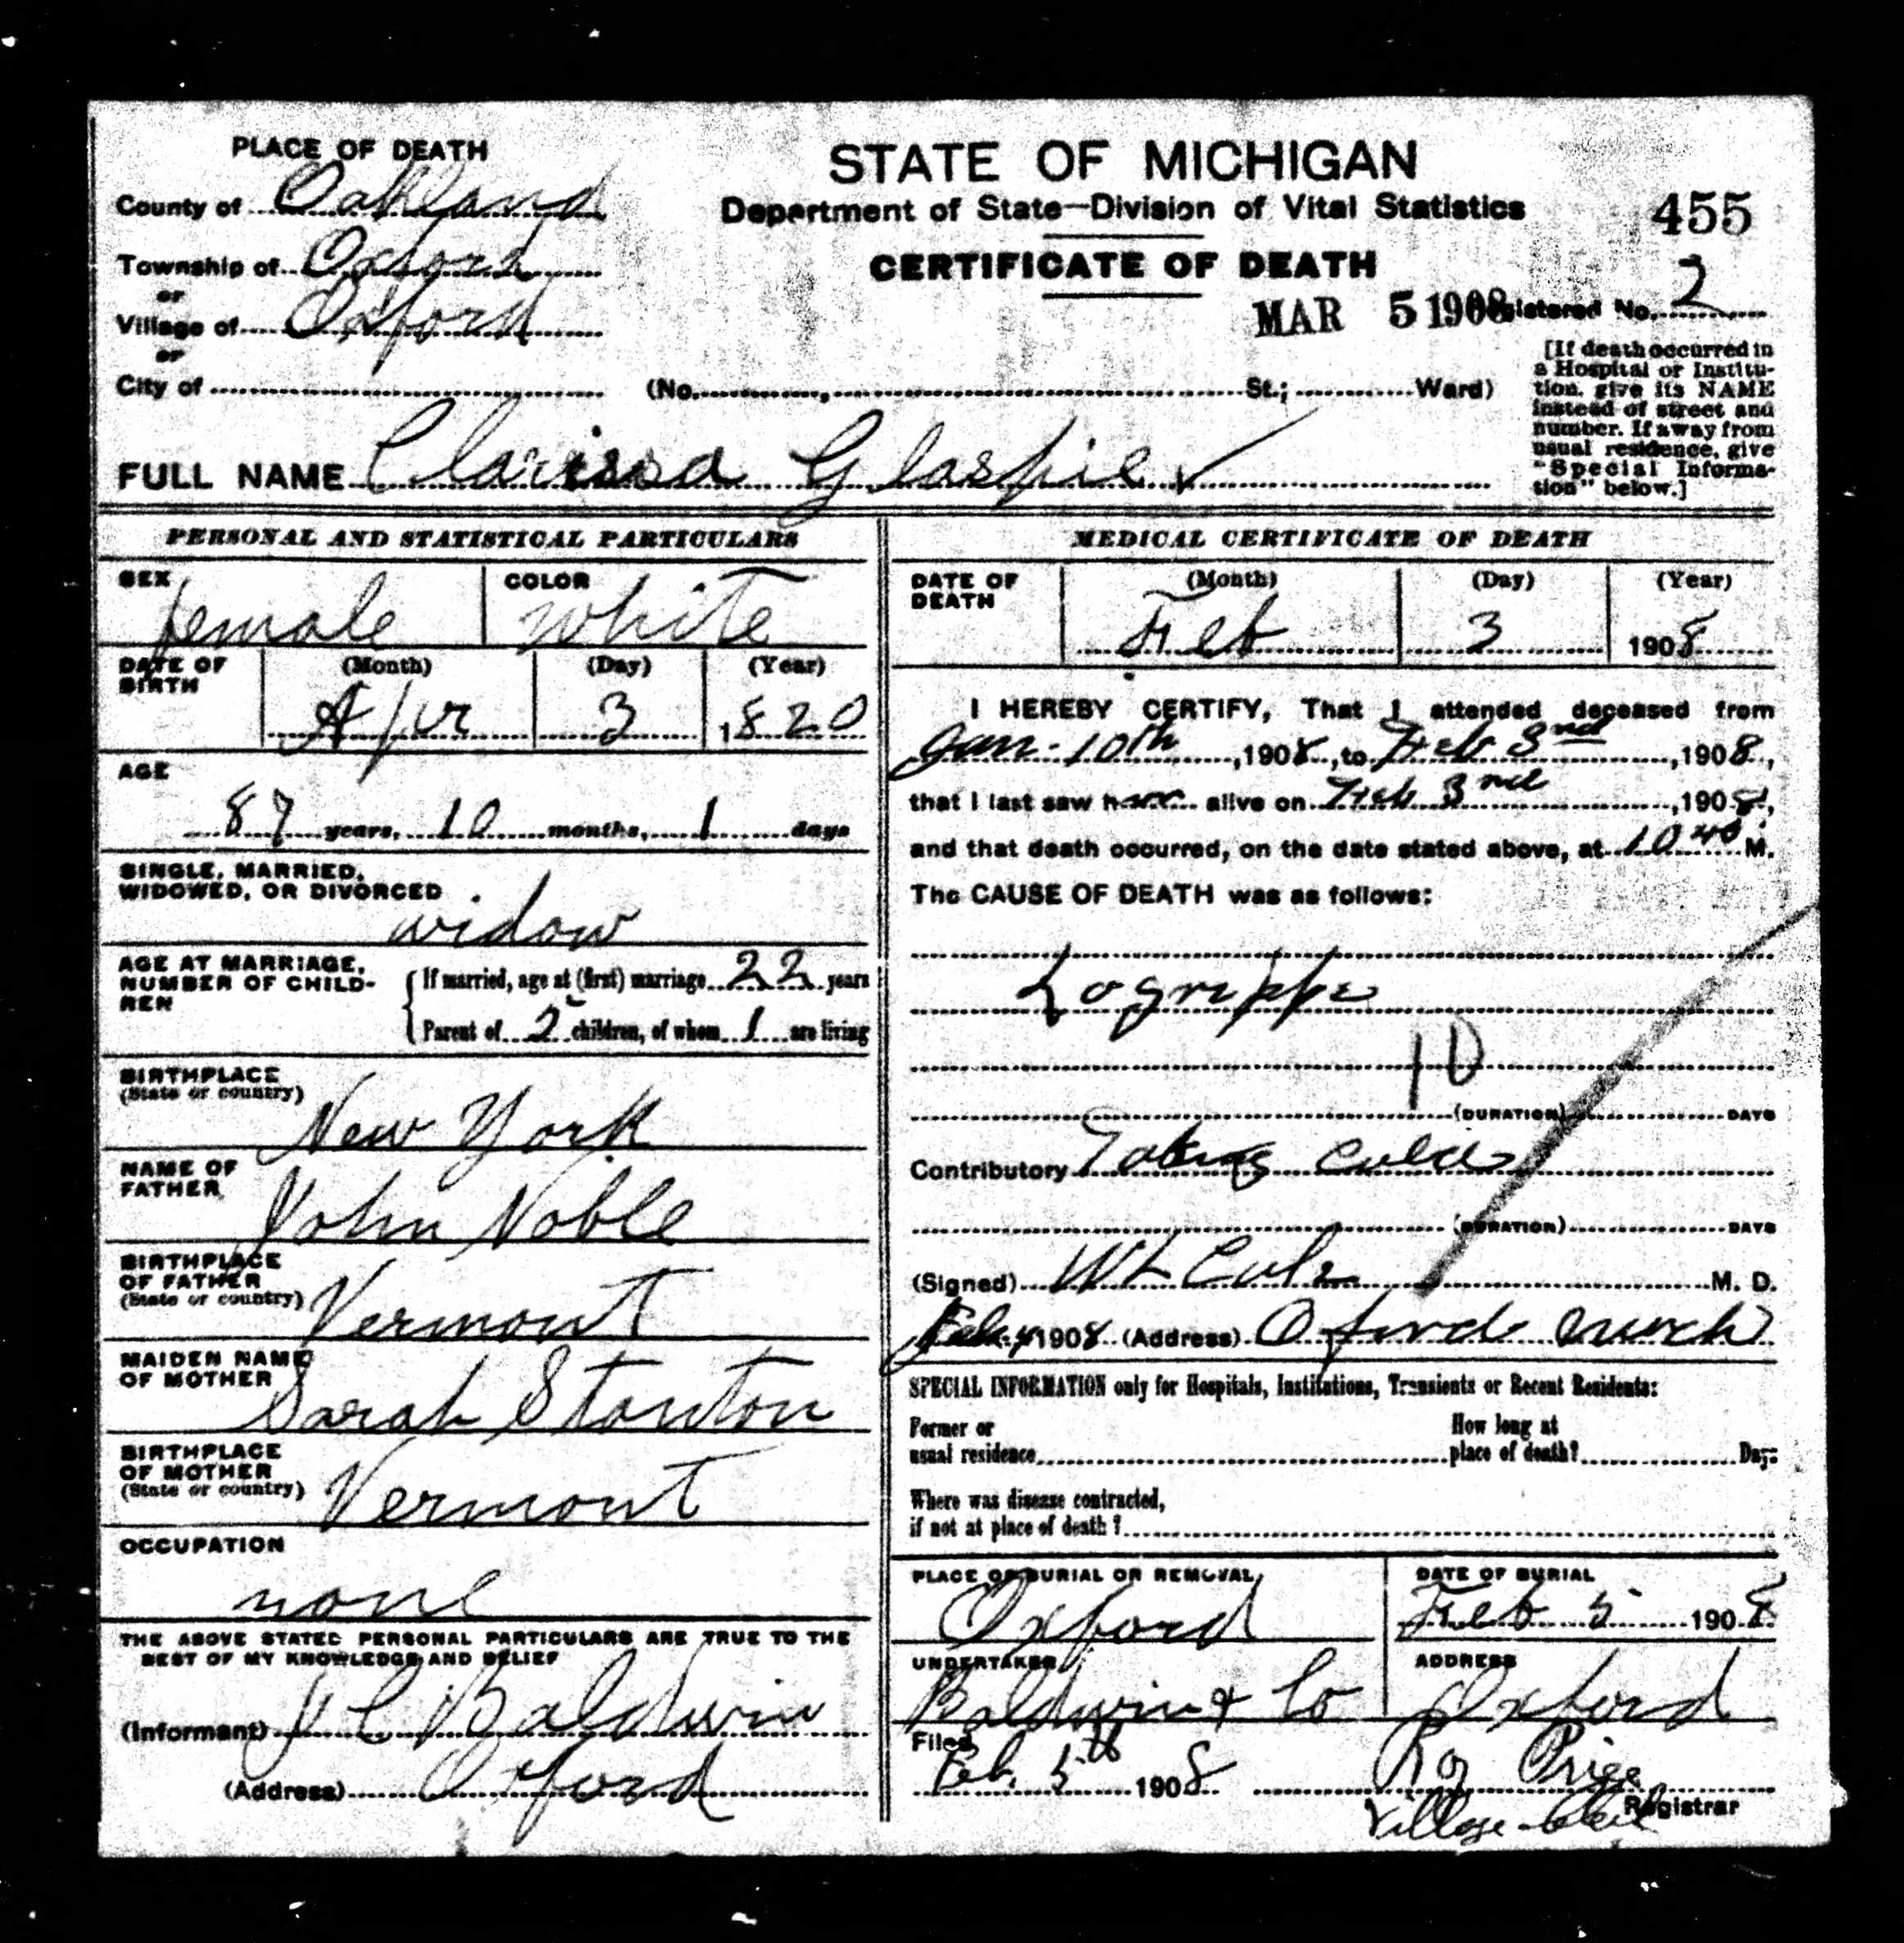 PLACE OF DEATH
County of Oakland
Township of Oxford
or
Village of Oxford
or
City of
STATE OF MICHIGAN
Department of State—Division of Vital Statistics
455
CERTIFICATE OF DEATH
MAR 5 1908
Registered No. 2
(No. , St.; Ward)
[If death occurred in
a Hospital or Institu-
tion, give its NAME
instead of street and
number. If away from
usual residence, give
"Special Informa-
tion" below.]
FULL NAME Clarissa Glaspie
PERSONAL AND STATISTICAL PARTICULARS
SEX female
COLOR White
DATE OF
BIRTH
(Month) (Day) (Year)
Apr 3 1820
AGE
87 years, 10 months, 1 days
SINGLE, MARRIED,
WIDOWED, OR DIVORCED
widow
AGE AT MARRIAGE,
NUMBER OF CHILD-
REN
If married, age at (first) marriage 22 years
Parent of 2 children, of whom 1 are living
BIRTHPLACE
(State or country)
New York
NAME OF
FATHER
John Noble
BIRTHPLACE
OF FATHER
(State or country)
Vermont
MAIDEN NAME
OF MOTHER
Sarah Stanton
BIRTHPLACE
OF MOTHER
(State or country)
Vermont
OCCUPATION
none
THE ABOVE STATED PERSONAL PARTICULARS ARE TRUE TO THE
BEST OF MY KNOWLEDGE AND BELIEF
(Informant) J C Baldwin
(Address) Oxford
MEDICAL CERTIFICATE OF DEATH
DATE OF
DEATH
(Month) (Day) (Year)
Feb 3 1908
I HEREBY CERTIFY, That I attended deceased from
Jan. 10th, 1908, to Feb 3rd, 1908,
that I last saw her alive on Feb 3rd, 1908,
and that death occurred, on the date stated above, at 10 40 M.
The CAUSE OF DEATH was as follows:
Lagrippe
10
(DURATION) DAYS
Contributory Taking colds
(DURATION) DAYS
(Signed) M. D.
Feb. 4 1908 (Address) Oxford
SPECIAL INFORMATION only for Hospitals, Institutions, Transients or Recent Residents:
Former or
usual residence
How long at
place of death? Days
Where was disease contracted,
if not at place of death?
PLACE OF BURIAL OR REMOVAL
Oxford
DATE OF BURIAL
Feb 5 1908
UNDERTAKER
Baldwin & Co
ADDRESS
Oxford
Filed
Feb. 5th 1908 Roy Price
Registrar
Village Clerk